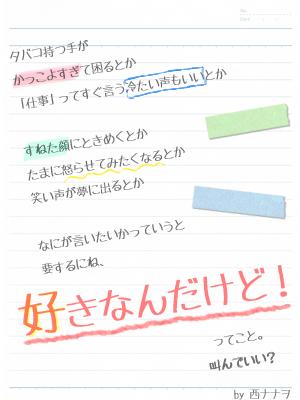 No.
Date
タバコ持つ手が
かっこよすぎて困るとか
「仕事」ってすぐ言う冷たい声もいいとか
すねた顔にときめくとか
たまに怒らせてみたくなるとか
笑い声が夢に出るとか
なにが言いたいかっていうと
要するにね、
好きなんだけど！
ってこと。
叫んでいい？
by 西ナナヲ